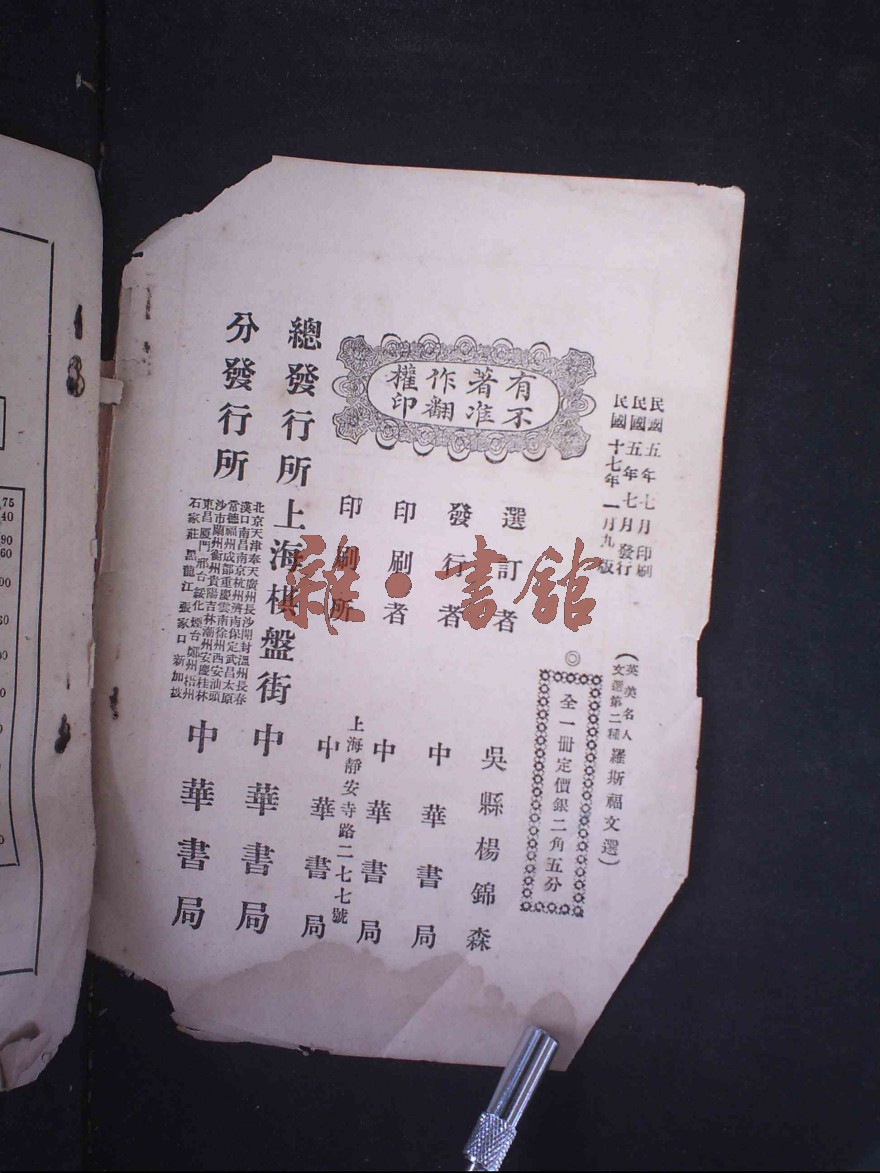 民國五年七月印刷
民國五年七月發行
民國十七年一月九版
(英美名人文選第二種 羅斯福文選)
◎全一冊定價銀二角五分
有著作權
不准翻印
選訂者 吳縣楊錦森
發行者 中華書局
印刷者 中華書局
上海靜安寺路二七七號
印刷所 中華書局
總發行所 上海棋盤街 中華書局
分發行所 中華書局
北京天津奉天廣州長沙開封溫州長春
漢口南昌南京杭州濟南保定武昌太原
常德福州成都重慶雲南徐州西安汕頭
沙市蘭州衢州貴陽吉林潮州安慶桂林
東昌廈門邢台綏化煙台鄭州梧州
石家莊黑龍江張家口新加坡
雜·書館
75
40
90
60